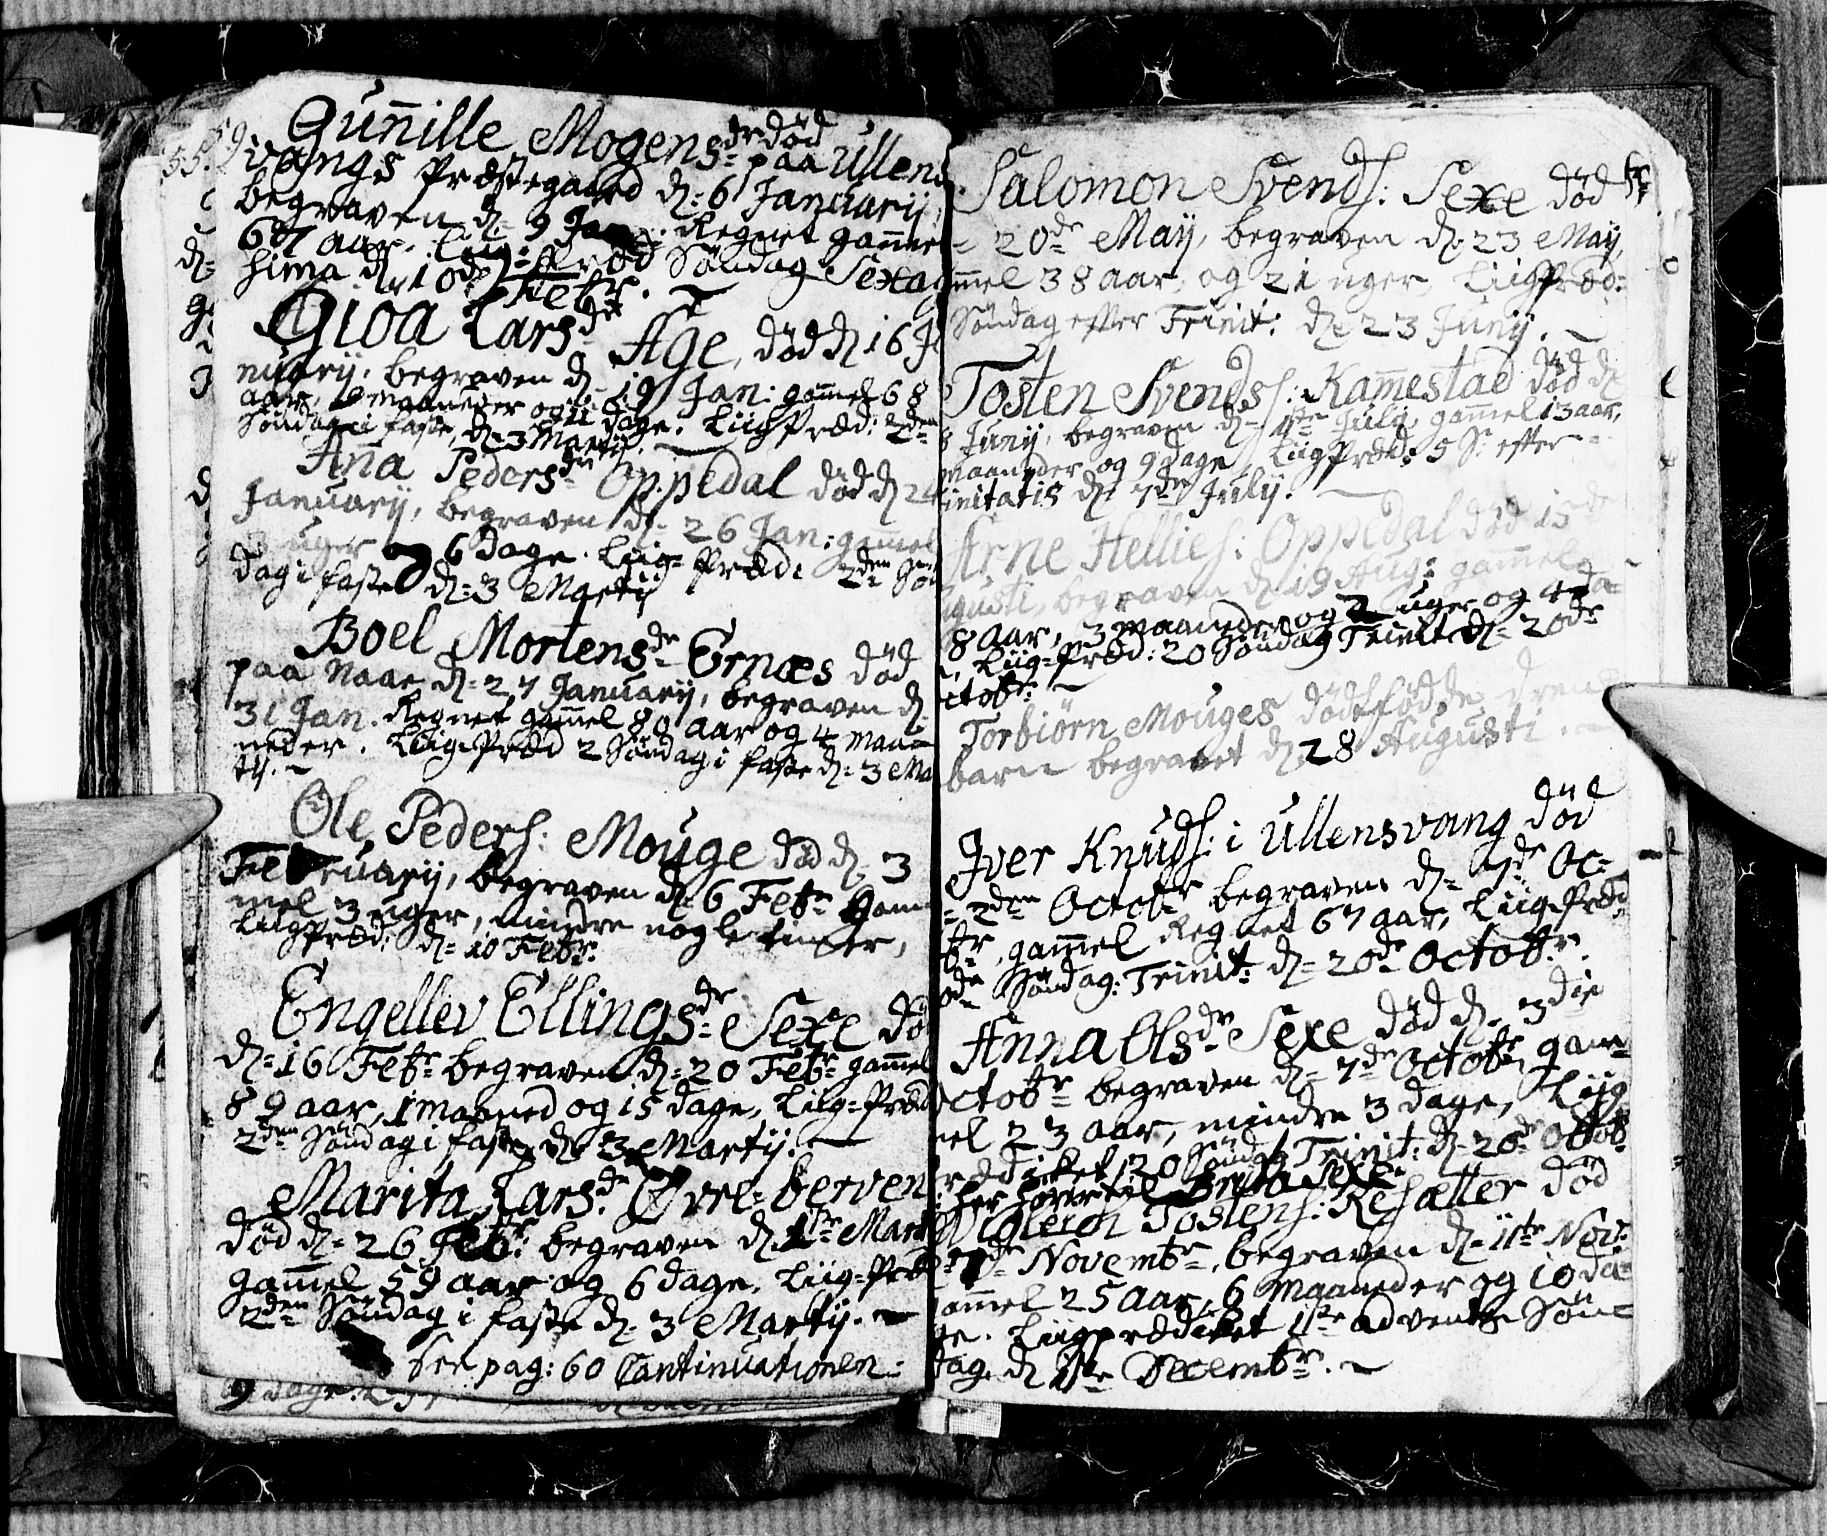 Guñille Mogensdr død
paa Ullens
vangs Præstegaard d: 6 Januarij,
begraven d: 9 Jan: Regnet gam̃el
67 aar. Liig-Præd Søndag Sexage
sima d: 10de Febr.
Gioa Larsdr Age, død d 16 Ja
nuarij, begraven d: 19 Jan: gam̃el 68
aar, maaneder og 11 dage. LiigPræd: 2den
Søndag i faste, d: 3 Martij.
Añа Pedersdr Oppedal død d 24
Januarij, begraven d: 26 Jan: gam̃el
3 uger og 6 dage. Liig-Præd: 2den Søn
dag i faste d: 3 Martij
Boel Mortensdr Ernæs død
paa Naae d: 27 Januarij, begraven d:
31 Jan. Regnet gam̃el 80 aar og 4 maa
neder. Liig-Præd 2 Søndag i faste d: 3 Mar
tij.
Ole Peders: Mouge død d. 3
Februarij, begraven d: 6 Febr Gam
mel 3 uger, mindre nogle timer,
LiigPræd: d: 10 Febr.
Engellev Ellingsdr Sexe død
d: 16 Febr begraven d: 20 Febr gam̃el
89 aar, 1 maaned og 15 dage, Liig-Præd
2den Søndag i faste d: 3 Martij.
Marita Larsdr Øvre-berven
død d: 26 Febr: begraven d. 1te Mart
gam̃el 59 aar og 6 dage. Liig-Præd
2den Søndag i faste d: 3 Martij.
See pag: 60 Continuationen:
Salomon Svends: Sexe død
20de May, begraven d. 23 May,
m̃el 38 aar, og 21 uger, LiigPræd:
Søndag efter Trinit: d: 23 Junij.
Tosten Svends: Kam̃estad død d
8 Junij, begraven d: 1te Julij, gam̃el 13 aar,
maaneder og 9 dage, LiigPræd: 5 S: efter
initatis d: 7de Julij.
Arne Hellies: Oppedal død 15de
gusti, begraven d 19 Aug: gam̃el
8 Aar, 3 maaneder og 2 uger og 4 da
, Liig-Præd: 20 Søndag Trinit d: 20de
ctobr:
Torbiørn Mouges dødfødde drenge
barn begravet d: 28 Augusti.
Iver Knuds: i Ullensvang død
2den Octobr begraven d: 7de Oc-
br, gam̃el Regnet 67 aar, Liig-Præd
ode Søndag: Trinit: d: 20de Octobr.
Anna Olsdr Sexe død d. 3die
Octobr begraven d: 7de Octobr gam
mel 23 aar, mindre 3 dage, Liig
rædiket 20 Søndag Trinit: d: 20de Octob.
: her hører til Brita Sexe.
Tostens: Resætter død
7de Novembr, begraven d: 11te Nov:
gam̃el 25 aar, 6 Maaneder og 10 da-
ge. Liigprædiket 1ste advents Søn-
dag. d 1te Decembr.